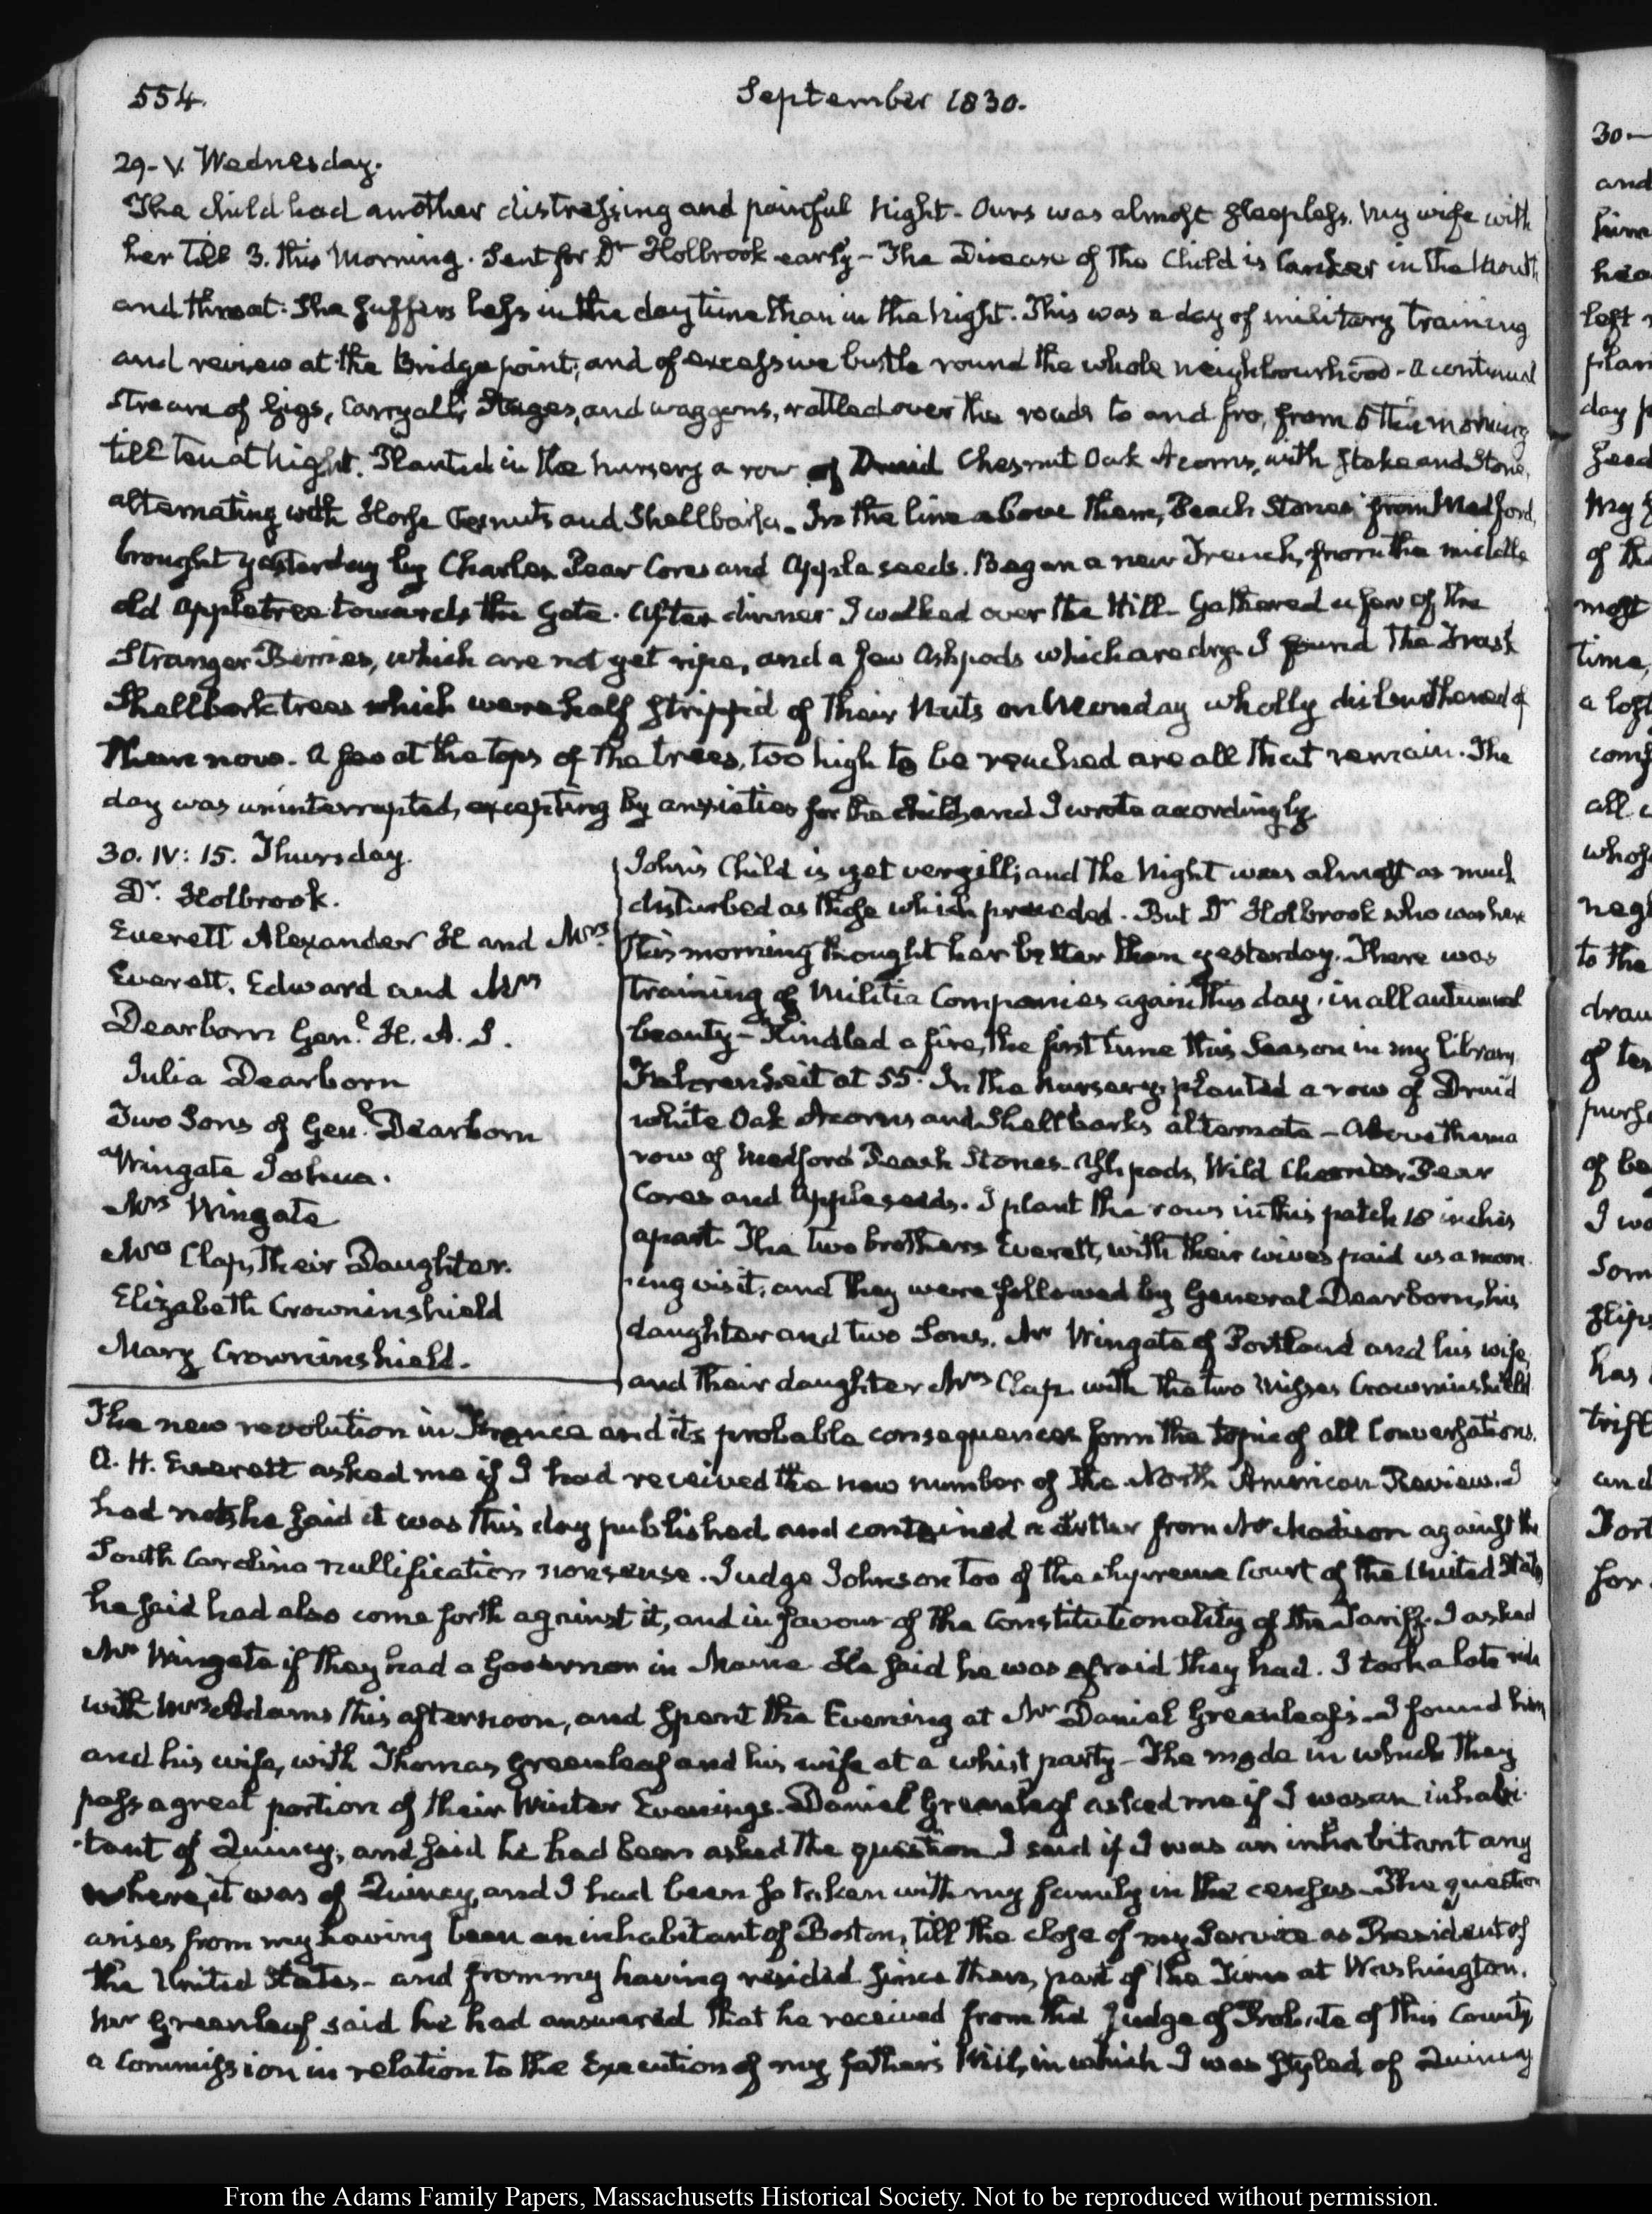 554.
September 1830.
29. V. Wednesday.
The child had another distressing and painful night. Ours was almost sleepless. My wife with
her till 3. this Morning. Sent for Dr Holbrook early – The Disease of the Child is Canker in the Mouth
and throat. She suffers less in the day time than in the Night. This was a day of military training
and review at the Bridge point; and of excessive bustle round the whole neighbourhood – a continual
stream of Gigs, Carryalls, Stages, and waggons, rattled over the roads to and fro, from 5 this morning
till ten at Night. Planted in the nursery a row of Druid Chesnut Oak Acorns, with stake and Stone,
alternating with Horse Chesnuts and Shellbarks. In the line above them, Peach Stones from Medford,
brought yesterday by Charles. Pear Cores and Apple seeds. Began a new Trench, from the middle
old Appletree towards the Gate. After dinner I walked over the Hill. Gathered a few of the
Stranger Berries, which are not yet ripe, and a few Ashpods which are dry. I found the Trask
Shellbark trees which were half stripped of their Nuts on Monday wholly disburthened of
them now. A few at the tops of the trees, too high to be reached are all that remain. The
day was uninterrupted, excepting by anxieties for the child, and I wrote accordingly.
30. IV: 15. Thursday.
Dr. Holbrook.
Everett Alexander H and Mrs
Everett. Edward and Mrs
Dearborn Genl. H. A. S.
Julia Dearborn
Two Sons of Genl. Dearborn
Wingate Joshua.
Mrs Wingate
Mrs Clap, Their Daughter.
Elizabeth Crowninshield
Mary Crowninshield.
John's Child is yet very ill; and the Night was almost as much
disturbed as those which preceded. But Dr Holbrook who was here
this morning thought her better than yesterday. There was
training of Militia Companies again this day, in all autumnal
beauty – Kindled a fire, the first time this Season in my Library,
Fahrenheit at 55. In the Nursery, planted a row of Druid
white Oak Acorns and Shellbarks alternate – Above them a
row of Medford Peach Stones. Ash pods, Wild Cherries, Pear
Cores and Apple seeds. I plant the rows in this patch 18 inches
apart. The two brothers Everett, with their wives paid us a morn-
ing visit, and they were followed by General Dearborn, his
daughter and two Sons. Mr Wingate of Portland and his wife,
and their daughter Mrs Clap with the two Misses Crowninshield
The new revolution in France and its probable consequences form the topic of all Conversations.
A. H. Everett asked me if I had received the new number of the North American Review. I
had not; he said it was this day published and contained a Letter from Mr Madison against the
South Carolina nullification nonsense. Judge Johnson too of the Supreme Court of the United States
he said had also come forth against it, and in favour of the Constitutionality of the Tariff. I asked
Mr Wingate if they had a Governor in Maine. He said he was afraid they had. I took a late ride
with Mrs Adams this afternoon, and spent the Evening at Mr Daniel Greenleaf's. I found him
and his wife, with Thomas Greenleaf and his wife at a whist party – The mode in which they
pass a great portion of their Winter Evenings. Daniel Greenleaf asked me if I was an inhabi-
tant of Quincy, and said he had been asked the question. I said if I was an inhabitant any
where, it was of Quincy, and I had been so taken with my family in the census – The question
arises from my having been an inhabitant of Boston, till the close of my Service as President of
the United States – and from my having resided since then, part of the Time at Washington.
Mr Greenleaf said he had answered that he received from the Judge of Probate of this County
a Commission in relation to the Execution of my father's Will, in which I was styled, of Quincy
From the Adams Family Papers, Massachusetts Historical Society. Not to be reproduced without permission.